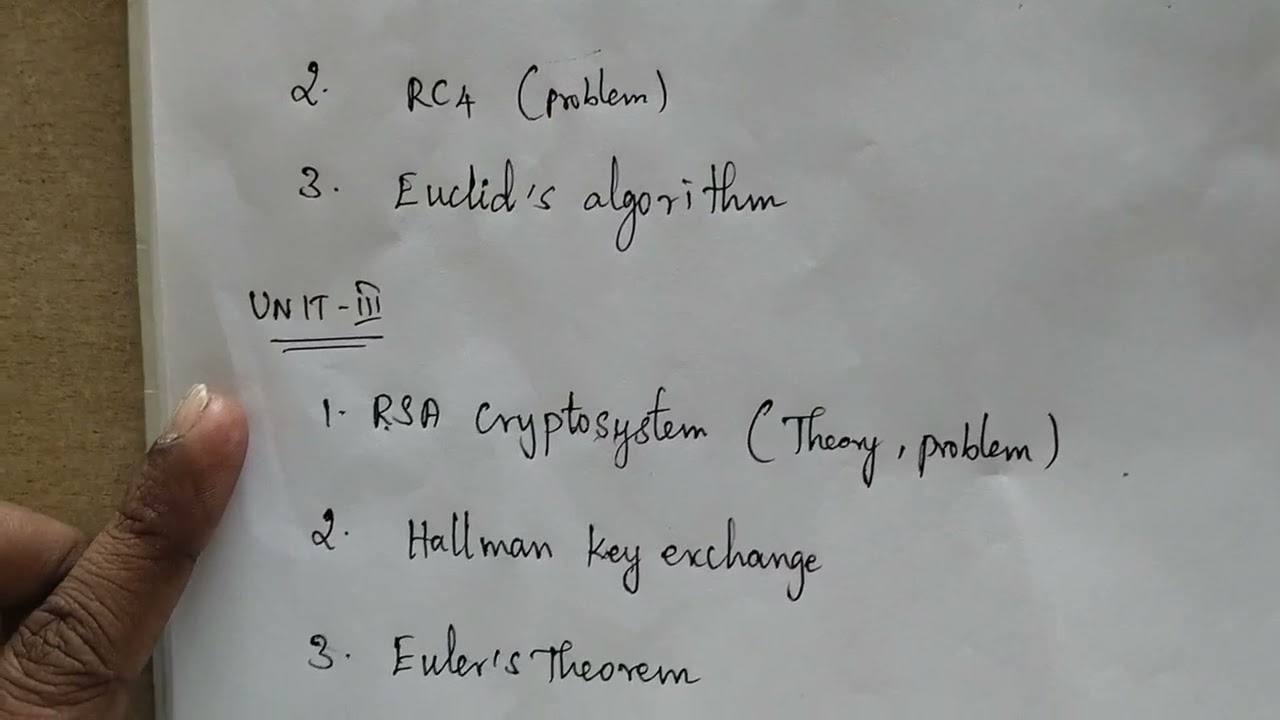 2. RC4 (problem)
3. Euclid's algorithm
UNIT-III
1. RSA Cryptosystem (Theory, problem)
2. Hallman key exchange
3. Euler's Theorem